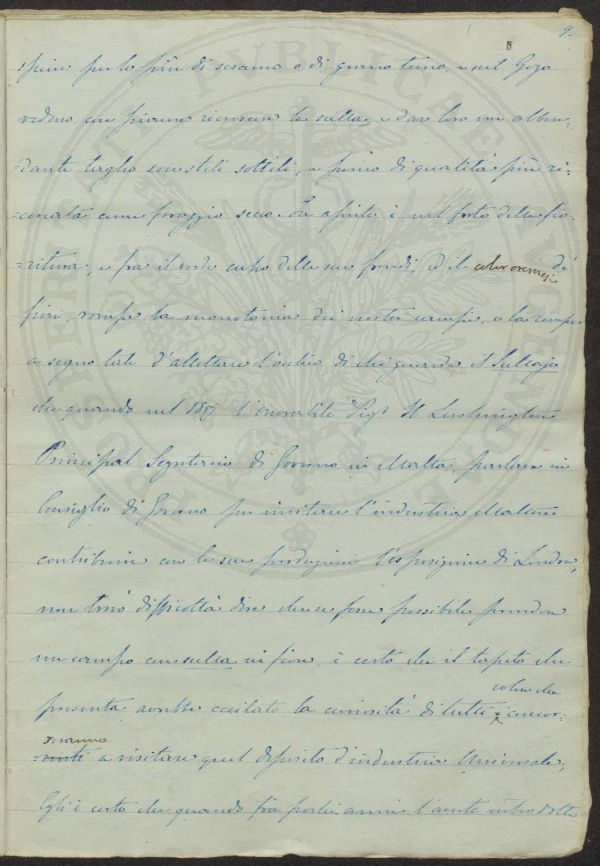 9.
spica per lo più di sesamo o di grano turco, e nel Gozo
vedono con piacere rinascere la sulla, e dar loro un abbon-
-dante taglio con steli sottili, e perciò di qualità più ri-
-cercata come foraggio secco. In aprile è nel forte della fio-
-ritura, e fra il verde cupo delle sue frondi, ed il color cremesi de'
fiori, rompe la monotonia dei nostri campi, e la rompe
a segno tale d'allettare l'occhio di chi guarda il
che quando nel 185 l'onorabile Sigr. H Lushington
Principal Segretario di Governo in Malta, parlava in
Consiglio di Governo per invitare l'industria Maltese
contribuire con le sue produzioni l'esposizione di Londra,
non trovò difficoltà dire che se fosse possibile prendere
un campo con sulla in fiore, è certo che il tapeto che
presenta avrebbe eccitato la curiosità di tutti coloro che concor-
-reranno a visitare quel deposito d'industria Universale,
Egli è certo che quando fra pochi anni l'avrete introdotta